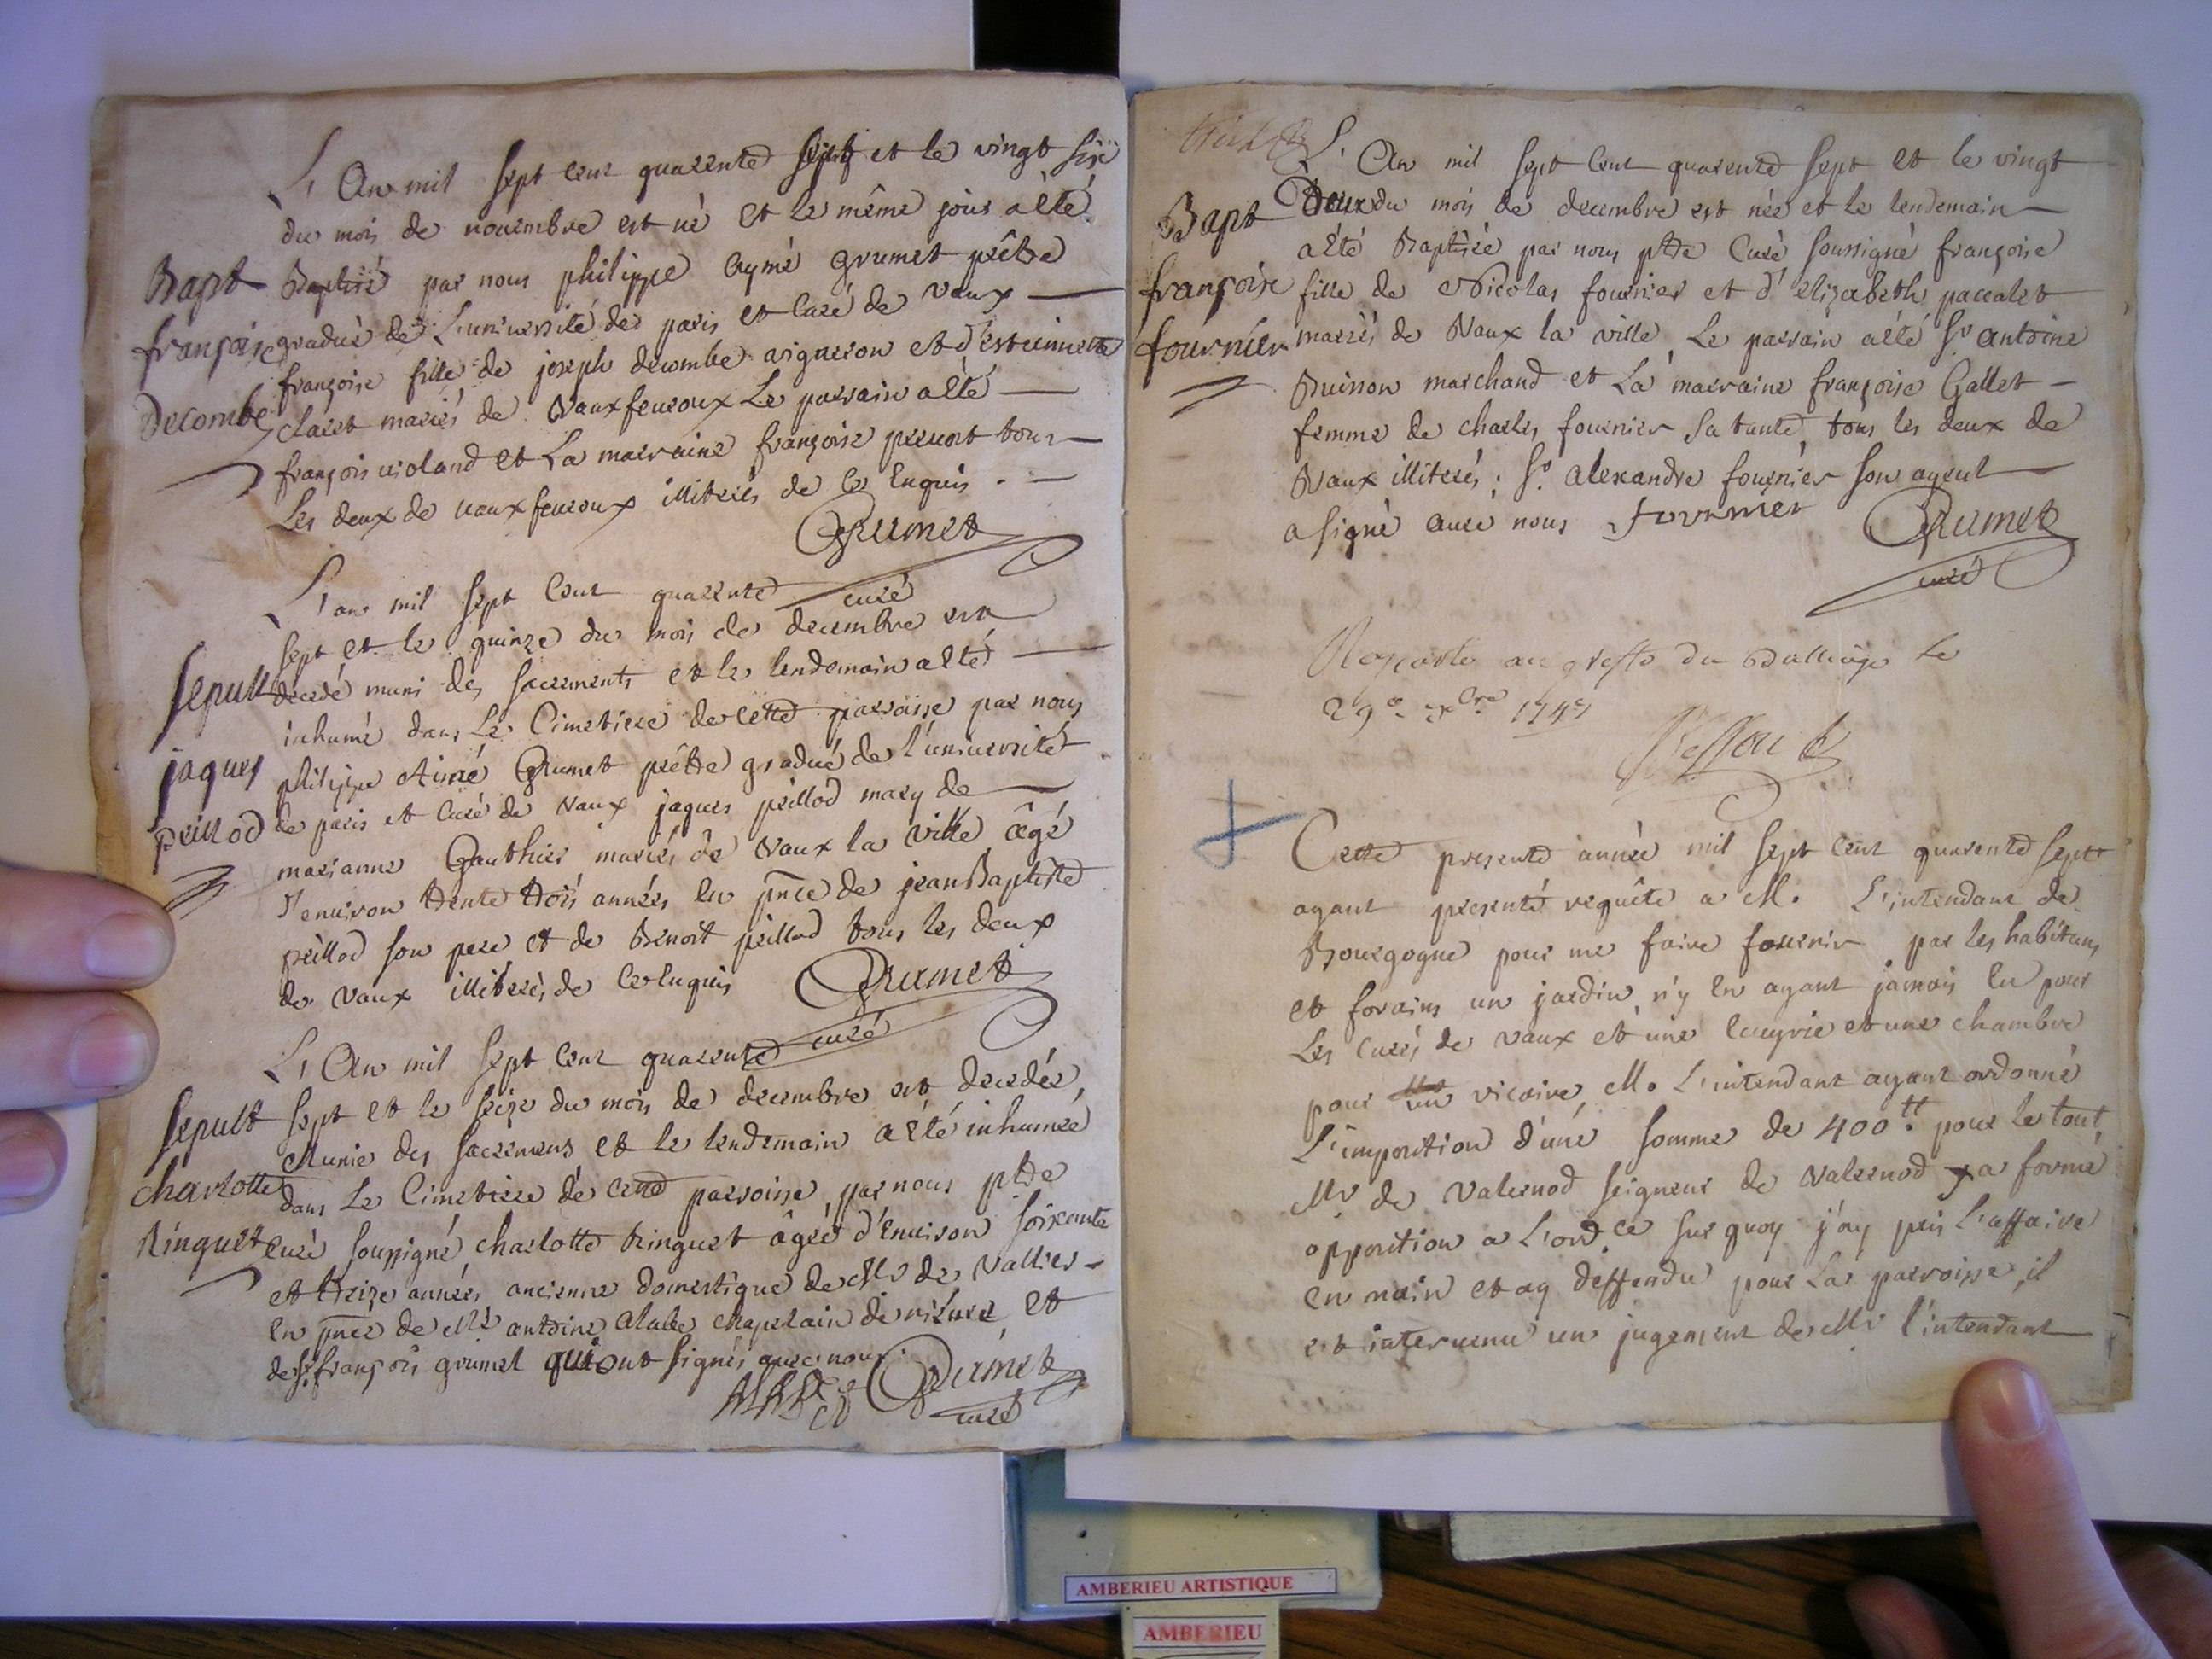 L'An mil sept cent quarente sept et le vingt six
du mois de nouembre est né et le même jour a eté
Bapt Baptisé par nous philippe Aymé grumet prêtre
gradué de L'uniuersité de paris et Curé de Vaux
françoise
françoise fille de joseph decombe vigneron et d'
Decombe Claret mariés de Vauxfeuroux Le parrain a eté
françois uioland et La marraine françoise tous
Les deux de uauxfeuroux illiterés de ce Enquis.
Grumet
curé
L'an mil sept Cent quarente
sept et le quinze du mois de decembre est
Sepult decedé muni des sacrements et le lendemain a eté
inhumé dans Le Cimetiere de cette parroisse par nous
jaques philippe Aimé Grumet prêtre gradué de l'uniuersité
prillod de paris et Curé de Vaux jaques prillod mary de
marianne Gauthier mariés de Vaux la ville âgé
d'enuiron trente trois années En pnce de jean Baptiste
prillod son pere et de Benoit prillod tous les deux
de Vaux illiterés de ce Enquis Grumet
curé
L'An mil sept Cent quarente
Sepult sept et le seize du mois de decembre est decedée,
Munie des sacremens et le lendemain a eté inhumée
charlotte dans Le Cimetiere de cette parroisse par nous ptre
Ringuet Curé soussigné, charlotte Ringuet âgée d'Enuiron soixante
et treize années ancienne domestique de Mr de Vallier
En pnce de Mre antoine chapelain de et
de sr. françois grumet qui ont signés auec nous.
Grumet
curé
L'An mil sept Cent quarente sept et le vingt
Bapt Deux du mois de decembre est née et le lendemain
a été Baptisée par nous ptre Curé soussigné françoise
françoise fille de Nicolas fournier et d'elizabeth paccalet
fournier mariés de Vaux la ville Le parrain a été Sr antoine
Buisson marchand et La marraine françoise Gallet
femme de charles fournier sa tante, tous les deux de
Vaux illiterés; Sr. alexandre fournier son ayeul
a signé auec nous fournier Grumet
curé
au greffe du Balliage le
29e. xbre 1747
Cette presente année mil sept cent quarente sept
ayant presenté requête a M. L'intendant de
Bourgogne pour me faire fournir par les habitans
et forains un jardin n'y En ayant jamais Eu pour
Les Curés de Vaux et une Ecuyrie et une chambre
pour un vicaire, M. L'intendant ayant ordonné
L'imposition d'une somme de 400tt. pour le tout,
Mr de Valernod seigneur de Valernod y a formé
opposition a L'ord.ce sur quoy j'ay pris l'affaire
en main et ay deffendu pour La parroisse, il
est interuenu un jugement de Mr l'intendant
AMBERIEU ARTISTIQUE
AMBERIEU